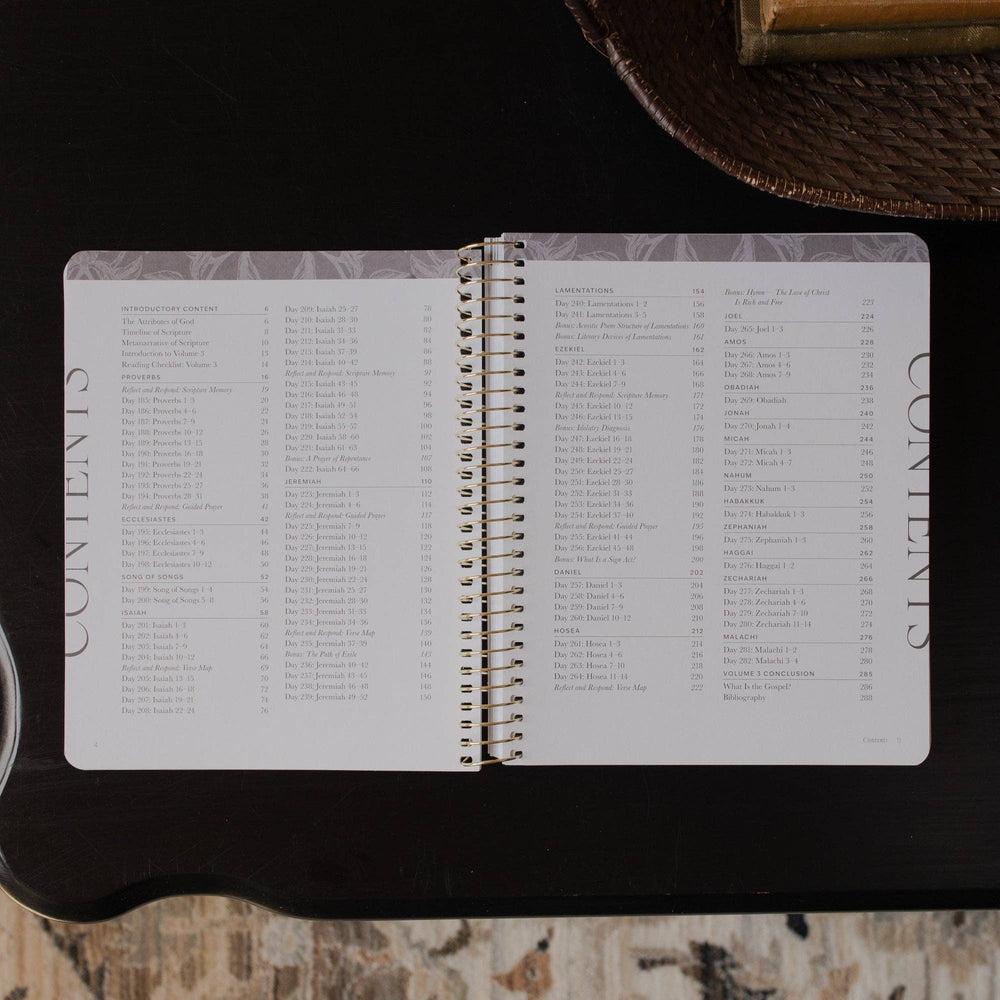 CONTENTS
INTRODUCTORY CONTENT 6
The Attributes of God 6
Timeline of Scripture 8
Metanarrative of Scripture 10
Introduction to Volume 3 13
Reading Checklist: Volume 3 14
PROVERBS 16
Reflect and Respond: Scripture Memory 19
Day 185: Proverbs 1–3 20
Day 186: Proverbs 4–6 22
Day 187: Proverbs 7–9 24
Day 188: Proverbs 10–12 26
Day 189: Proverbs 13–15 28
Day 190: Proverbs 16–18 30
Day 191: Proverbs 19–21 32
Day 192: Proverbs 22–24 34
Day 193: Proverbs 25–27 36
Day 194: Proverbs 28–31 38
Reflect and Respond: Guided Prayer 41
ECCLESIASTES 42
Day 195: Ecclesiastes 1–3 44
Day 196: Ecclesiastes 4–6 46
Day 197: Ecclesiastes 7–9 48
Day 198: Ecclesiastes 10–12 50
SONG OF SONGS 52
Day 199: Song of Songs 1–4 54
Day 200: Song of Songs 5–8 56
ISAIAH 58
Day 201: Isaiah 1–3 60
Day 202: Isaiah 4–6 62
Day 203: Isaiah 7–9 64
Day 204: Isaiah 10–12 66
Reflect and Respond: Verse Map 69
Day 205: Isaiah 13–15 70
Day 206: Isaiah 16–18 72
Day 207: Isaiah 19–21 74
Day 208: Isaiah 22–24 76
Day 209: Isaiah 25–27 78
Day 210: Isaiah 28–30 80
Day 211: Isaiah 31–33 82
Day 212: Isaiah 34–36 84
Day 213: Isaiah 37–39 86
Day 214: Isaiah 40–42 88
Reflect and Respond: Scripture Memory 91
Day 215: Isaiah 43–45 92
Day 216: Isaiah 46–48 94
Day 217: Isaiah 49–51 96
Day 218: Isaiah 52–54 98
Day 219: Isaiah 55–57 100
Day 220: Isaiah 58–60 102
Day 221: Isaiah 61–63 104
Bonus: A Prayer of Repentance 107
Day 222: Isaiah 64–66 108
JEREMIAH 110
Day 223: Jeremiah 1–3 112
Day 224: Jeremiah 4–6 114
Reflect and Respond: Guided Prayer 117
Day 225: Jeremiah 7–9 118
Day 226: Jeremiah 10–12 120
Day 227: Jeremiah 13–15 122
Day 228: Jeremiah 16–18 124
Day 229: Jeremiah 19–21 126
Day 230: Jeremiah 22–24 128
Day 231: Jeremiah 25–27 130
Day 232: Jeremiah 28–30 132
Day 233: Jeremiah 31–33 134
Day 234: Jeremiah 34–36 136
Reflect and Respond: Verse Map 139
Day 235: Jeremiah 37–39 140
Bonus: The Path of Exile 143
Day 236: Jeremiah 40–42 144
Day 237: Jeremiah 43–45 146
Day 238: Jeremiah 46–48 148
Day 239: Jeremiah 49–52 150
4
LAMENTATIONS 154
Day 240: Lamentations 1–2 156
Day 241: Lamentations 3–5 158
Bonus: Acrostic Poem Structure of Lamentations 160
Bonus: Literary Devices of Lamentations 161
EZEKIEL 162
Day 242: Ezekiel 1–3 164
Day 243: Ezekiel 4–6 166
Day 244: Ezekiel 7–9 168
Reflect and Respond: Scripture Memory 171
Day 245: Ezekiel 10–12 172
Day 246: Ezekiel 13–15 174
Bonus: Idolatry Diagnosis 176
Day 247: Ezekiel 16–18 178
Day 248: Ezekiel 19–21 180
Day 249: Ezekiel 22–24 182
Day 250: Ezekiel 25–27 184
Day 251: Ezekiel 28–30 186
Day 252: Ezekiel 31–33 188
Day 253: Ezekiel 34–36 190
Day 254: Ezekiel 37–40 192
Reflect and Respond: Guided Prayer 195
Day 255: Ezekiel 41–44 196
Day 256: Ezekiel 45–48 198
Bonus: What Is a Sign Act? 200
DANIEL 202
Day 257: Daniel 1–3 204
Day 258: Daniel 4–6 206
Day 259: Daniel 7–9 208
Day 260: Daniel 10–12 210
HOSEA 212
Day 261: Hosea 1–3 214
Day 262: Hosea 4–6 216
Day 263: Hosea 7–10 218
Day 264: Hosea 11–14 220
Reflect and Respond: Verse Map 222
Bonus: Hymn — The Love of Christ
Is Rich and Free 223
JOEL 224
Day 265: Joel 1–3 226
AMOS 228
Day 266: Amos 1–3 230
Day 267: Amos 4–6 232
Day 268: Amos 7–9 234
OBADIAH 236
Day 269: Obadiah 238
JONAH 240
Day 270: Jonah 1–4 242
MICAH 244
Day 271: Micah 1–3 246
Day 272: Micah 4–7 248
NAHUM 250
Day 273: Nahum 1–3 252
HABAKKUK 254
Day 274: Habakkuk 1–3 256
ZEPHANIAH 258
Day 275: Zephaniah 1–3 260
HAGGAI 262
Day 276: Haggai 1–2 264
ZECHARIAH 266
Day 277: Zechariah 1–3 268
Day 278: Zechariah 4–6 270
Day 279: Zechariah 7–10 272
Day 280: Zechariah 11–14 274
MALACHI 276
Day 281: Malachi 1–2 278
Day 282: Malachi 3–4 280
VOLUME 3 CONCLUSION 285
What Is the Gospel? 286
Bibliography 288
CONTENTS
Contents